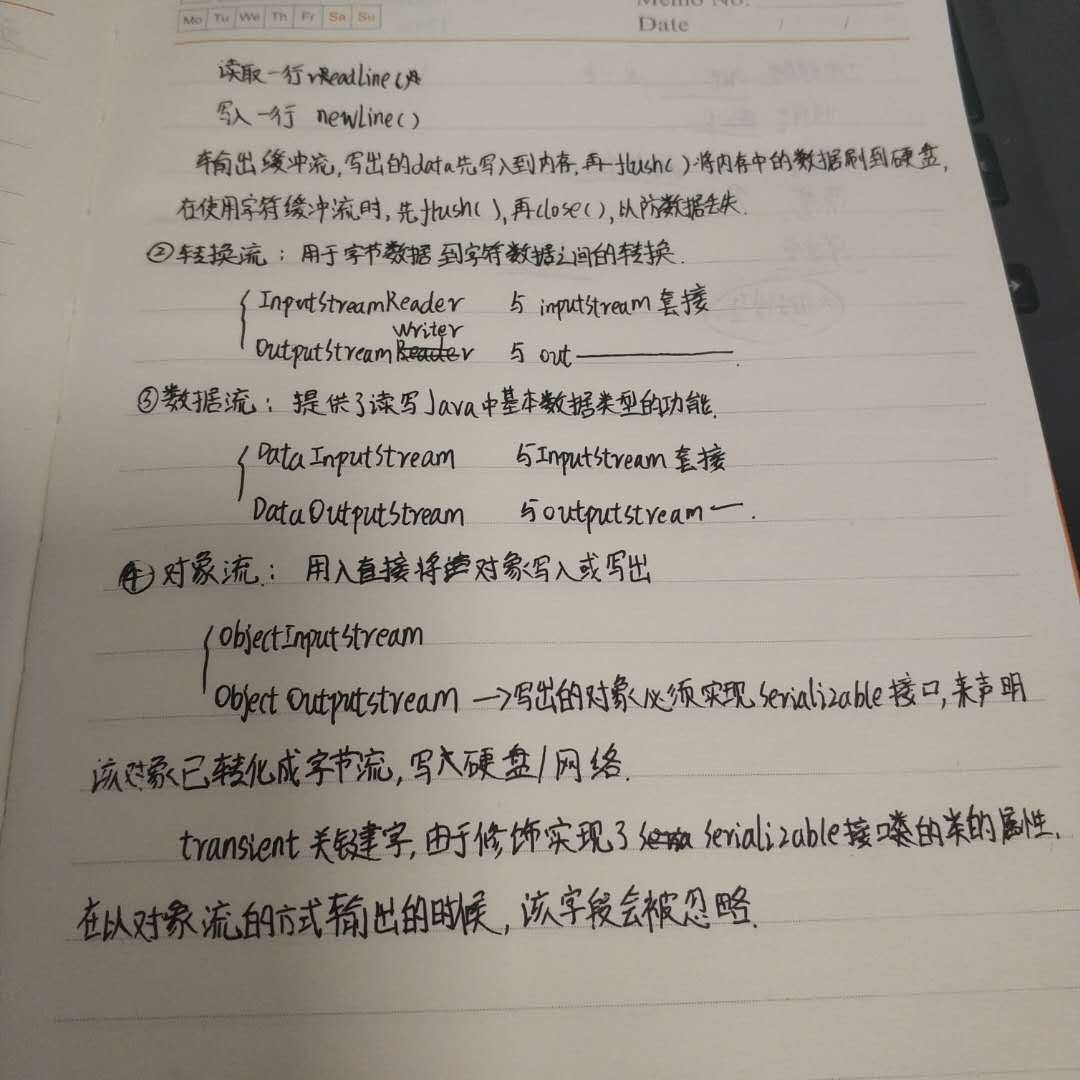 Mo Tu We Th Fr Sa Su
Memo No.
Date / /
读取一行 readLine()
写入一行 newLine()
输出缓冲流,写出的data先写入到内存,再flush()将内存中的数据刷到硬盘,
在使用字符缓冲流时,先flush(),再close(),以防数据丢失.
②转换流:用于字节数据到字符数据之间的转换.
InputStreamReader 与 inputstream 套接
Writer
OutputStream 与 out———.
③数据流:提供了读写Java中基本数据类型的功能.
DataInputStream 与InputStream套接
DataOutputStream 与outputstream—.
④对象流:用入直接将对象写入或写出
ObjectInputStream
Object Outputstream →写出的对象必须实现serializable接口,来声明
该对象已转化成字节流,写入硬盘/网络.
transient 关键字,由于修饰实现了serializable接口类的类的属性.
在以对象流的方式输出的时候,该字段会被忽略.